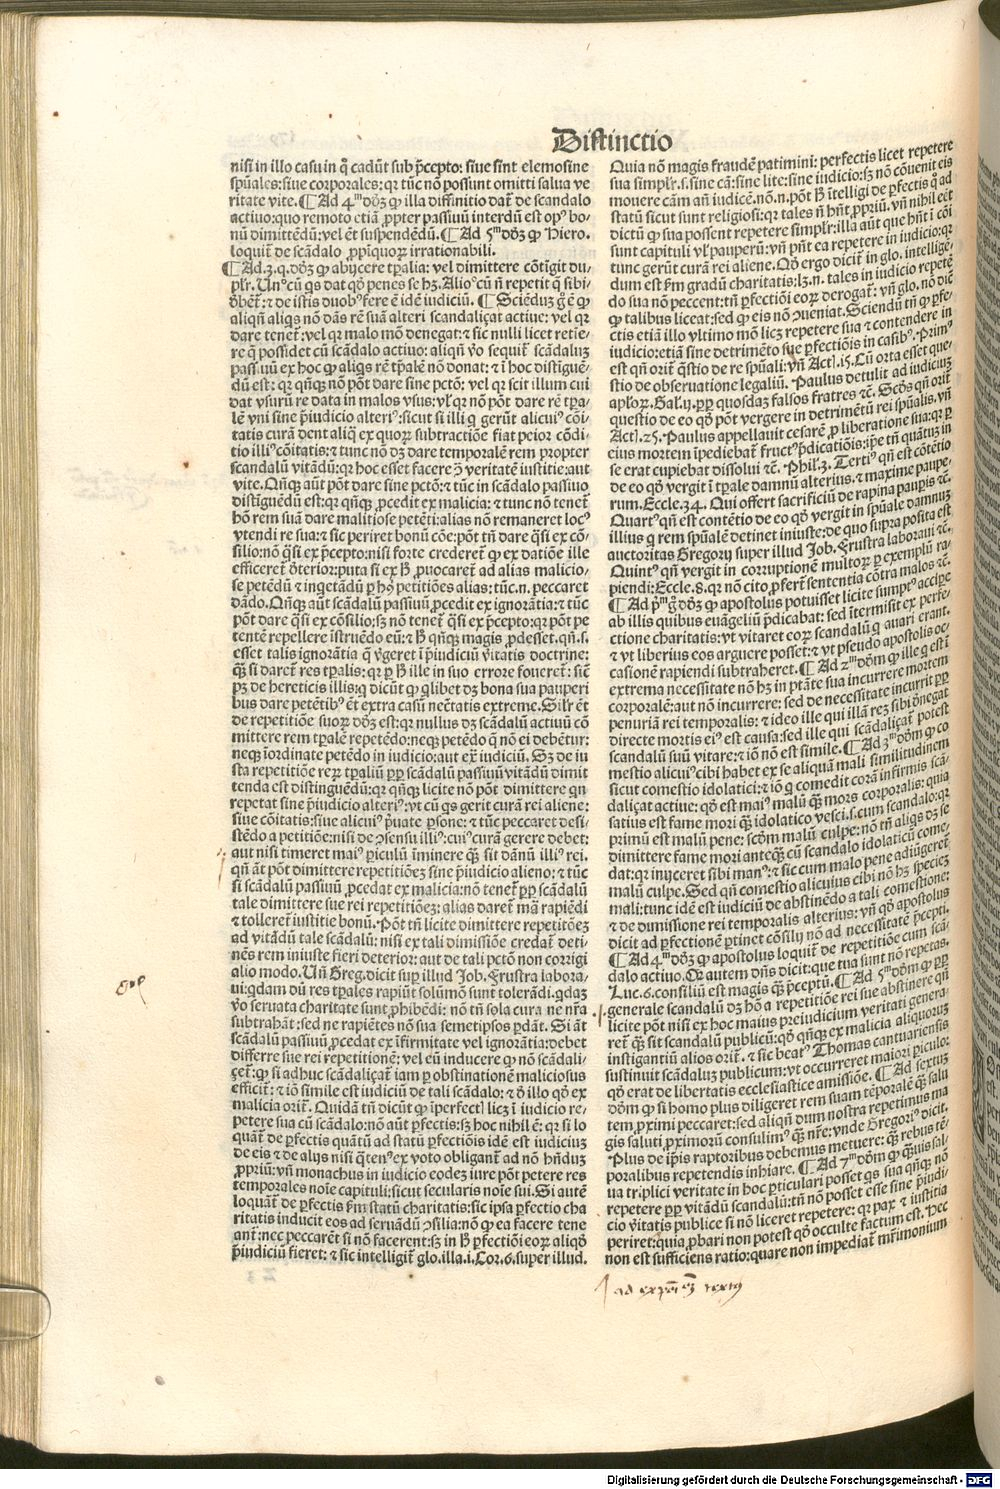 Distinctio
nisi in illo casu in q̃ cadũt sub p̃cepto: siue sint elemosine
spũales: siue corporales: qr tũc nõ possunt omitti salua ve
ritate vite. ¶ Ad 4ᵐ dõz ꝙ illa diffinitio dať de scandalo
actiuo: quo remoto etiã ꝓpter passiuũ interdũ est opꝰ bo-
nũ dimittẽdũ: vel ẽt suspendẽdũ. ¶ Ad 5ᵐ dõz ꝙ Hiero.
loquiť de scãdalo ꝓpiquoꝝ irrationabili.
¶ Ad .3. q. dõz ꝙ abijcere tꝑalia: vel dimittere cõtĩgit du-
aliqñ aliqs nõ dãs rẽ suã alteri scandaliçat actiue: vel qr
dare teneť: vel qr malo mõ denegat: ⁊ sic nulli licet retie-
re q̃ possidet cũ scãdalo actiuo: aliqñ ṽo sequiť scãdaluꝫ
passiuũ ex hoc ꝙ aliqs rẽ tꝑalẽ nõ donat: ⁊ ĩ hoc distĩguẽ-
dũ est: qr qñqꝫ nõ põt dare sine pctõ: vel qr scit illum cui
dat vsurũ re data in malos vsus: vl̃ qr nõ põt dare rẽ tꝑa-
lẽ vni sine p̃iudicio alteriꝰ: sicut si illi q̃ gerũt alicuiꝰ cõi-
tatis curã dent aliq̃ ex quoꝝ subtractiõe fiat peior cõdi-
tio illiꝰ cõitatis: ⁊ tunc nõ dꝫ dare temporalẽ rem propter
scandalũ vitãdũ: qr hoc esset facere ꝯ̃ veritatẽ iustitie: aut
vite. Qñqꝫ aũt põt dare sine pctõ: ⁊ tũc in scãdalo passiuo
distĩguẽdũ est: qr qñqꝫ ꝓcedit ex malicia: ⁊ tunc nõ teneť
hõ rem suã dare malitiose petẽti: alias nõ remaneret locꝰ
vtendi re sua: ⁊ sic periret bonũ cõe: põt tñ dare q̃si ex cõ-
silio: nõ q̃si ex p̃cepto: nisi forte crederet ꝙ ex datiõe ille
efficereť deterior: puta si ex ħ ꝓuocareť ad alias malicio-
se petẽdũ ⁊ inqetãdũ p hꝰ petitiões alias: tũc .n. peccaret
dãdo. Qñqꝫ aũt scãdalũ passiuũ ꝓcedit ex ignorãtia: ⁊ tũc
põt dare q̃si ex cõsilio: sꝫ nõ teneť q̃si ex p̃cepto: qr põt pe-
tentẽ repellere ĩstruẽdo eũ: ⁊ ħ qñqꝫ magis ꝓdesset. qñ. s.
esset talis ignorãtia q̃ v̾geret ĩ p̃iudiciũ v̾itatis doctrine:
q̃ꝫ si dareñ res tꝑalis: qr p ħ ille in suo errore foueret: sic̃
pꝫ de hereticis illis: q̃ dicũt ꝙ qlibet dꝫ bona sua pauperi
bus dare petẽtibꝰ ẽt extra casũ nec̃tatis extreme. Silr̃ ẽt
de repetitiõe suoꝝ dõz est: qr nullus dꝫ scãdalũ actiuũ cõ
mittere rem tꝑalẽ repetẽdo: neqꝫ petẽdo q̃ nõ ei debẽtur:
neqꝫ iordinate petẽdo in iudicio: aut ex̃ iudiciũ. Sꝫ de iu
sta repetitiõe reꝝ tꝑaliũ ꝓp̃ scãdalũ passiuũ vitãdũ dimit
tenda est distinguẽdũ: qr qñqꝫ licite nõ põt dimittere qn
repetat sine p̃iudicio alteriꝰ: vt cũ qs gerit curã rei aliene:
siue cõitatis: siue alicuiꝰ p̃uate ꝑsone: ⁊ tũc peccaret desi-
stẽdo a petitiõe: nisi de ꝯsensu illiꝰ: cuiꝰ curã gerere debet:
aut nisi timeret maiꝰ ꝑiculũ ĩminere q̃ꝫ sit dãnũ illiꝰ rei.
qñ aũt põt dimittere repetitiõeꝫ sine p̃iudicio alieno: ⁊ tũc
si scãdalũ passiuũ ꝓcedat ex malicia: nõ teneť ꝓp̃ scãdalũ
tale dimittere sue rei repetitiõeꝫ: alias dareť mã rapiẽdi
⁊ tollereť iustitie bonũ. Põt tñ licite dimittere repetitõeꝫ
ad vitãdũ tale scãdalũ: nisi ex tali dimissiõe credat deti-
nẽs rem iniuste fieri deterior: aut de tali pctõ non corrigi
alio modo. Uñ Greg. dicit sup illud Job. Frustra labora-
ui: qdam dũ res tꝑales rapiũt solũmõ sunt tolerãdi. qdaꝫ
ṽo seruata charitate sunt ꝓhibẽdi: nõ tñ sola cura ne nr̃a
subtrahãt: sed ne rapiẽtes nõ sua semetipsos ꝑdãt. Si aũt
scãdalũ passiuũ ꝓcedat ex ĩfirmitate vel ignorãtia: debet
differre sue rei repetitionẽ: vel eũ inducere ꝙ nõ scãdali-
çeť: ꝙ si adhuc scãdaliçať iam p obstinationẽ maliciosus
efficiť: ⁊ iõ simile est iudiciũ de tali scãdalo: ⁊ de illo q̃ ex
malicia oriť. Quidã tñ dicũt ꝙ ĩperfecti licꝫ ĩ iudicio re-
petere sua cũ scãdalo: nõ aũt ꝑfectis: sꝫ hoc nihil ẽ: qr si lo
quať de ꝑfectis quãtũ ad statũ ꝑfectiõis idẽ est iudiciuꝫ
de eis ⁊ de alijs nisi q̃tenꝰ ex voto obliganť ad nõ hñduꝫ
ꝓpriũ: vñ monachus in iudicio eodeꝫ iure põt petere res
temporales noĩe capituli: sicut secularis noĩe sui. Si autẽ
loquať de ꝑfectis ẜm statũ charitatis: sic ipsa ꝑfectio cha
ritatis inducit eos ad seruãdũ ꝯsilia: nõ ꝙ ea facere tene
anť: nec peccareñt si nõ facerent: sꝫ in ħ ꝑfectiõi eoꝝ aliqd̃
p̃iudiciũ fieret: ⁊ sic intelligiť glo. illa .i. Cor. 6. super illud.
Quia nõ magis fraudẽ patimini: perfectis licet repetere
sua simplr̃ .s. sine cã: sine lite: sine iudicio: sꝫ nõ cõuenit eis
mouere cãm añ iudicẽ. nõ .n. põt ħ ĩtelligi de ꝑfectis q̃ ad
statũ sicut sunt religiosi: qr tales ñ hñt ꝓpriũ. vñ nihil eẽt
dictũ ꝙ sua possent repetere simplr̃: illa aũt que hñt ĩ cõi
sunt capituli vl̃ pauperũ: vñ p̃nt ea repetere in iudicio: qr
tunc gerũt curã rei aliene. Qd̃ ergo diciť in glo. intelligẽ-
dum est ẜm gradũ charitatis: lꝫ .n. tales in iudicio repetẽ
do sua nõ peccent: tñ ꝑfectiõi eoꝝ derogať: vñ glo. nõ dic̃
ꝙ talibus liceat: sed ꝙ eis nõ ꝯueniat. Sciendũ tñ ꝙ ꝑfe-
ctis etiã illo vltimo mõ licꝫ repetere sua ⁊ contendere in
iudicio: etiã sine detrimẽto sue ꝑfectiõis in casibꝰ. Primꝰ
est qñ oriť q̃stio de re spũali: vñ Act. 15. Cũ orta esset que-
stio de obseruatione legaliũ. Paulus detulit ad iudiciuꝫ
apl̃oꝝ. Gal. ij. ꝓp̃ quosdaꝫ falsos fratres ⁊c̃. Scd̃s qñ oriť
questio de eo qd̃ põt vergere in detrimẽtũ rei spũalis. vñ
Act. 25. Paulus appellauit cesarẽ ꝓ liberatione sua: qr p
eius mortem ĩpediebať fructꝰ p̃dicatiõis: ip̃e tñ quãtuꝫ in
se erat cupiebat dissolui ⁊c̃. Phil. 3. Tertiꝰ qñ est cõtẽtio
de eo qd̃ vergit ĩ tꝑale damnũ alterius. ⁊ maxime paupe-
rum. Eccle. 34. Qui offert sacrificiũ de rapina paupis ⁊c̃.
Quartꝰ qñ est contẽtio de eo qd̃ vergit in spũale damnuꝫ
illius q̃ rem spũalẽ detinet iniuste: de quo supra posita est
auctoritas Gregorij super illud Job. Frustra laboraui ⁊c̃.
Quintꝰ qñ vergit in corruptionẽ multoꝝ p exemplũ ra-
piendi: Eccle. 8. qr nõ cito ꝓferť sententia cõtra malos ⁊c̃.
¶ Ad pᵐ q̃ dõz ꝙ apostolus potuisset licite sumptꝰ accipe
ab illis quibus euãgeliũ p̃dicabat: sed ĩtermisit ex perfe-
ctione charitatis: vt vitaret eoꝝ scandalũ q̃ auari erant.
⁊ vt liberius eos arguere posset: ⁊ vt pseudo apostolis oc-
casionẽ rapiendi subtraheret. ¶ Ad 2ᵐ dõm ꝙ ille q̃ est ĩ
extrema necessitate nõ hꝫ in ptãte sua incurrere mortem
corporalẽ: aut nõ incurrere: sed de necessitate incurrit ꝓp̃
penuriã rei temporalis: ⁊ ideo ille qui illã reꝫ sibi denegat
directe mortis eiꝰ est causa: sed ille qui scãdaliçať potest
scandalũ suũ vitare: ⁊ iõ nõ est simile. ¶ Ad 3ᵐ dõm ꝙ co
mestio alicuiꝰ cibi habet ex se aliquã mali similitudinem
sicut comestio idolatici: ⁊ iõ q̃ comedit corã infirmis scã-
daliçat actiue: qd̃ est maiꝰ malũ q̃ꝫ mors corporalis: quia
satius est fame mori q̃ꝫ idolatico vesci .s. cum scandalo: qr
primũ est malũ pene: scd̃m malũ culpe: nõ tñ aliqs dꝫ se
dimittere fame mori anteq̃ꝫ cũ scandalo idolaticũ come-
dat: qr inijceret sibi manꝰ: ⁊ sic cum malo pene adiũgeret
malũ culpe. Sed qñ comestio alicuius cibi nõ hꝫ specieꝫ
mali: tunc idẽ est iudiciũ de abstinẽdo a tali comestione:
⁊ de dimissione rei temporalis alterius: vñ qd̃ apostolus
dicit ad ꝑfectionẽ ꝑtinet cõsilij nõ ad necessitatẽ p̃cepti.
¶ Ad 4ᵐ dõz ꝙ apostolus loquiť de repetitiõe cum scã-
dalo actiuo. Qr autem dñs dicit: que tua sunt nõ repetas.
Luc. 6. consiliũ est magis q̃ꝫ p̃ceptũ. ¶ Ad 5ᵐ dõm ꝙ ꝓp̃
generale scandalũ dꝫ hõ a repetitiõe rei sue abstinere qñ
licite põt nisi ex hoc maius preiudicium veritati genera-
reť q̃ꝫ sit scandalũ publicũ: qd̃ qñqꝫ ex malicia aliquoruꝫ
instigantiũ alios oriť. ⁊ sic beatꝰ Thomas cantuariensis
sustinuit scãdaluꝫ publicum: vt occurreret maiori ꝑiculo:
qd̃ erat de libertatis ecclesiastice amissiõe. ¶ Ad sextuꝫ
dõm ꝙ si homo plus diligeret rem suam tẽporalẽ q̃ꝫ salu
tem ꝓximi peccaret: sed aliqñ dum nostra repetimus ma
gis saluti ꝓximoruꝫ consulimꝰ q̃ꝫ nr̃e: vnde Gregoriꝰ dicit.
Plus de ip̃is raptoribus debemus metuere: q̃ꝫ rebus tẽ-
poralibus repetendis inhiare. ¶ Ad 7ᵐ dõm ꝙ q̃ꝫuis sal-
ua triplici veritate in hoc ꝑticulari posset qs sua qñqꝫ nõ
repetere ꝓp̃ vitãdũ scandalũ: tñ nõ posset esse sine p̃iudi-
cio v̾itatis publice si nõ liceret repetere: qr pax ⁊ iustitia
periret: quia ꝓbari non potest qd̃ occulte factum est. Nec
non est sufficiens ratio: quare non impediať mr̃imonium
Digitalisierung gefördert durch die Deutsche Forschungsgemeinschaft - DFG